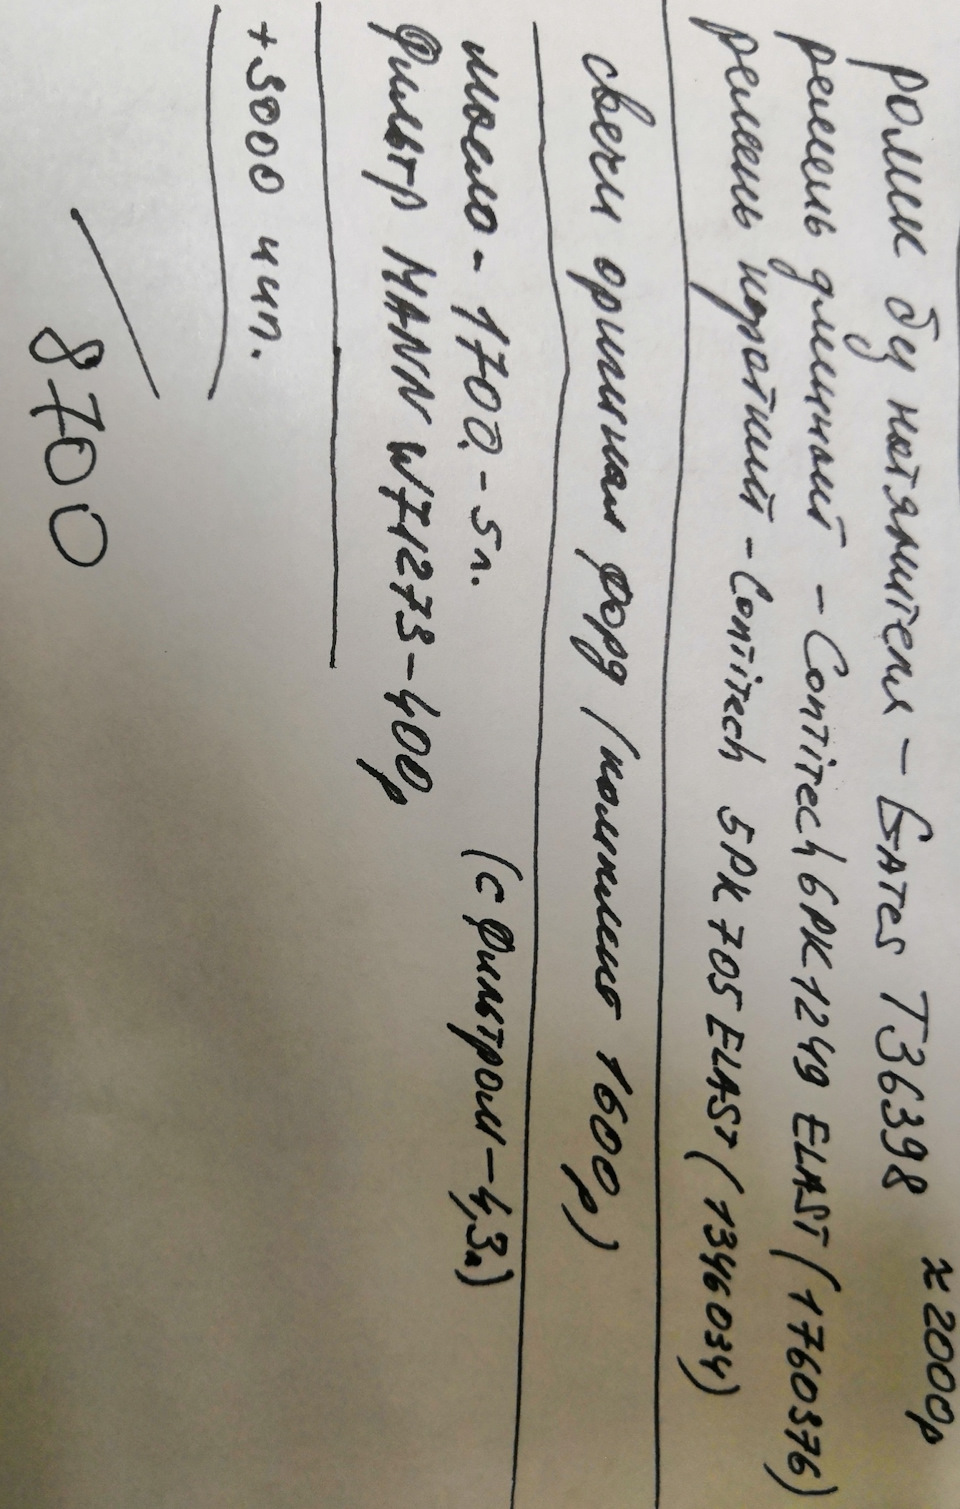 ≈2000р
ролик бу натяжителя - GATES T36398
ремень длинный - Contitech 6PK1249 ELAST (1760376)
ремень короткий - Contitech 5PK705 ELAST (1346034)
свечи оригинал форд (комплект 1600р)
масло - 1700. - 5л. (с фильтром - 4,3л)
фильтр MANN W71273 - 400р
+3000 чип.
8700